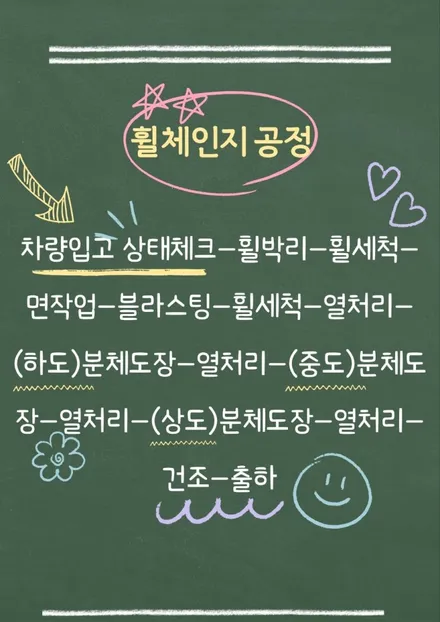 휠체인지 공정
차량입고 상태체크-휠박리-휠세척-
면작업-블라스팅-휠세척-열처리-
(하도)분체도장-열처리-(중도)분체도
장-열처리-(상도)분체도장-열처리-
건조-출하